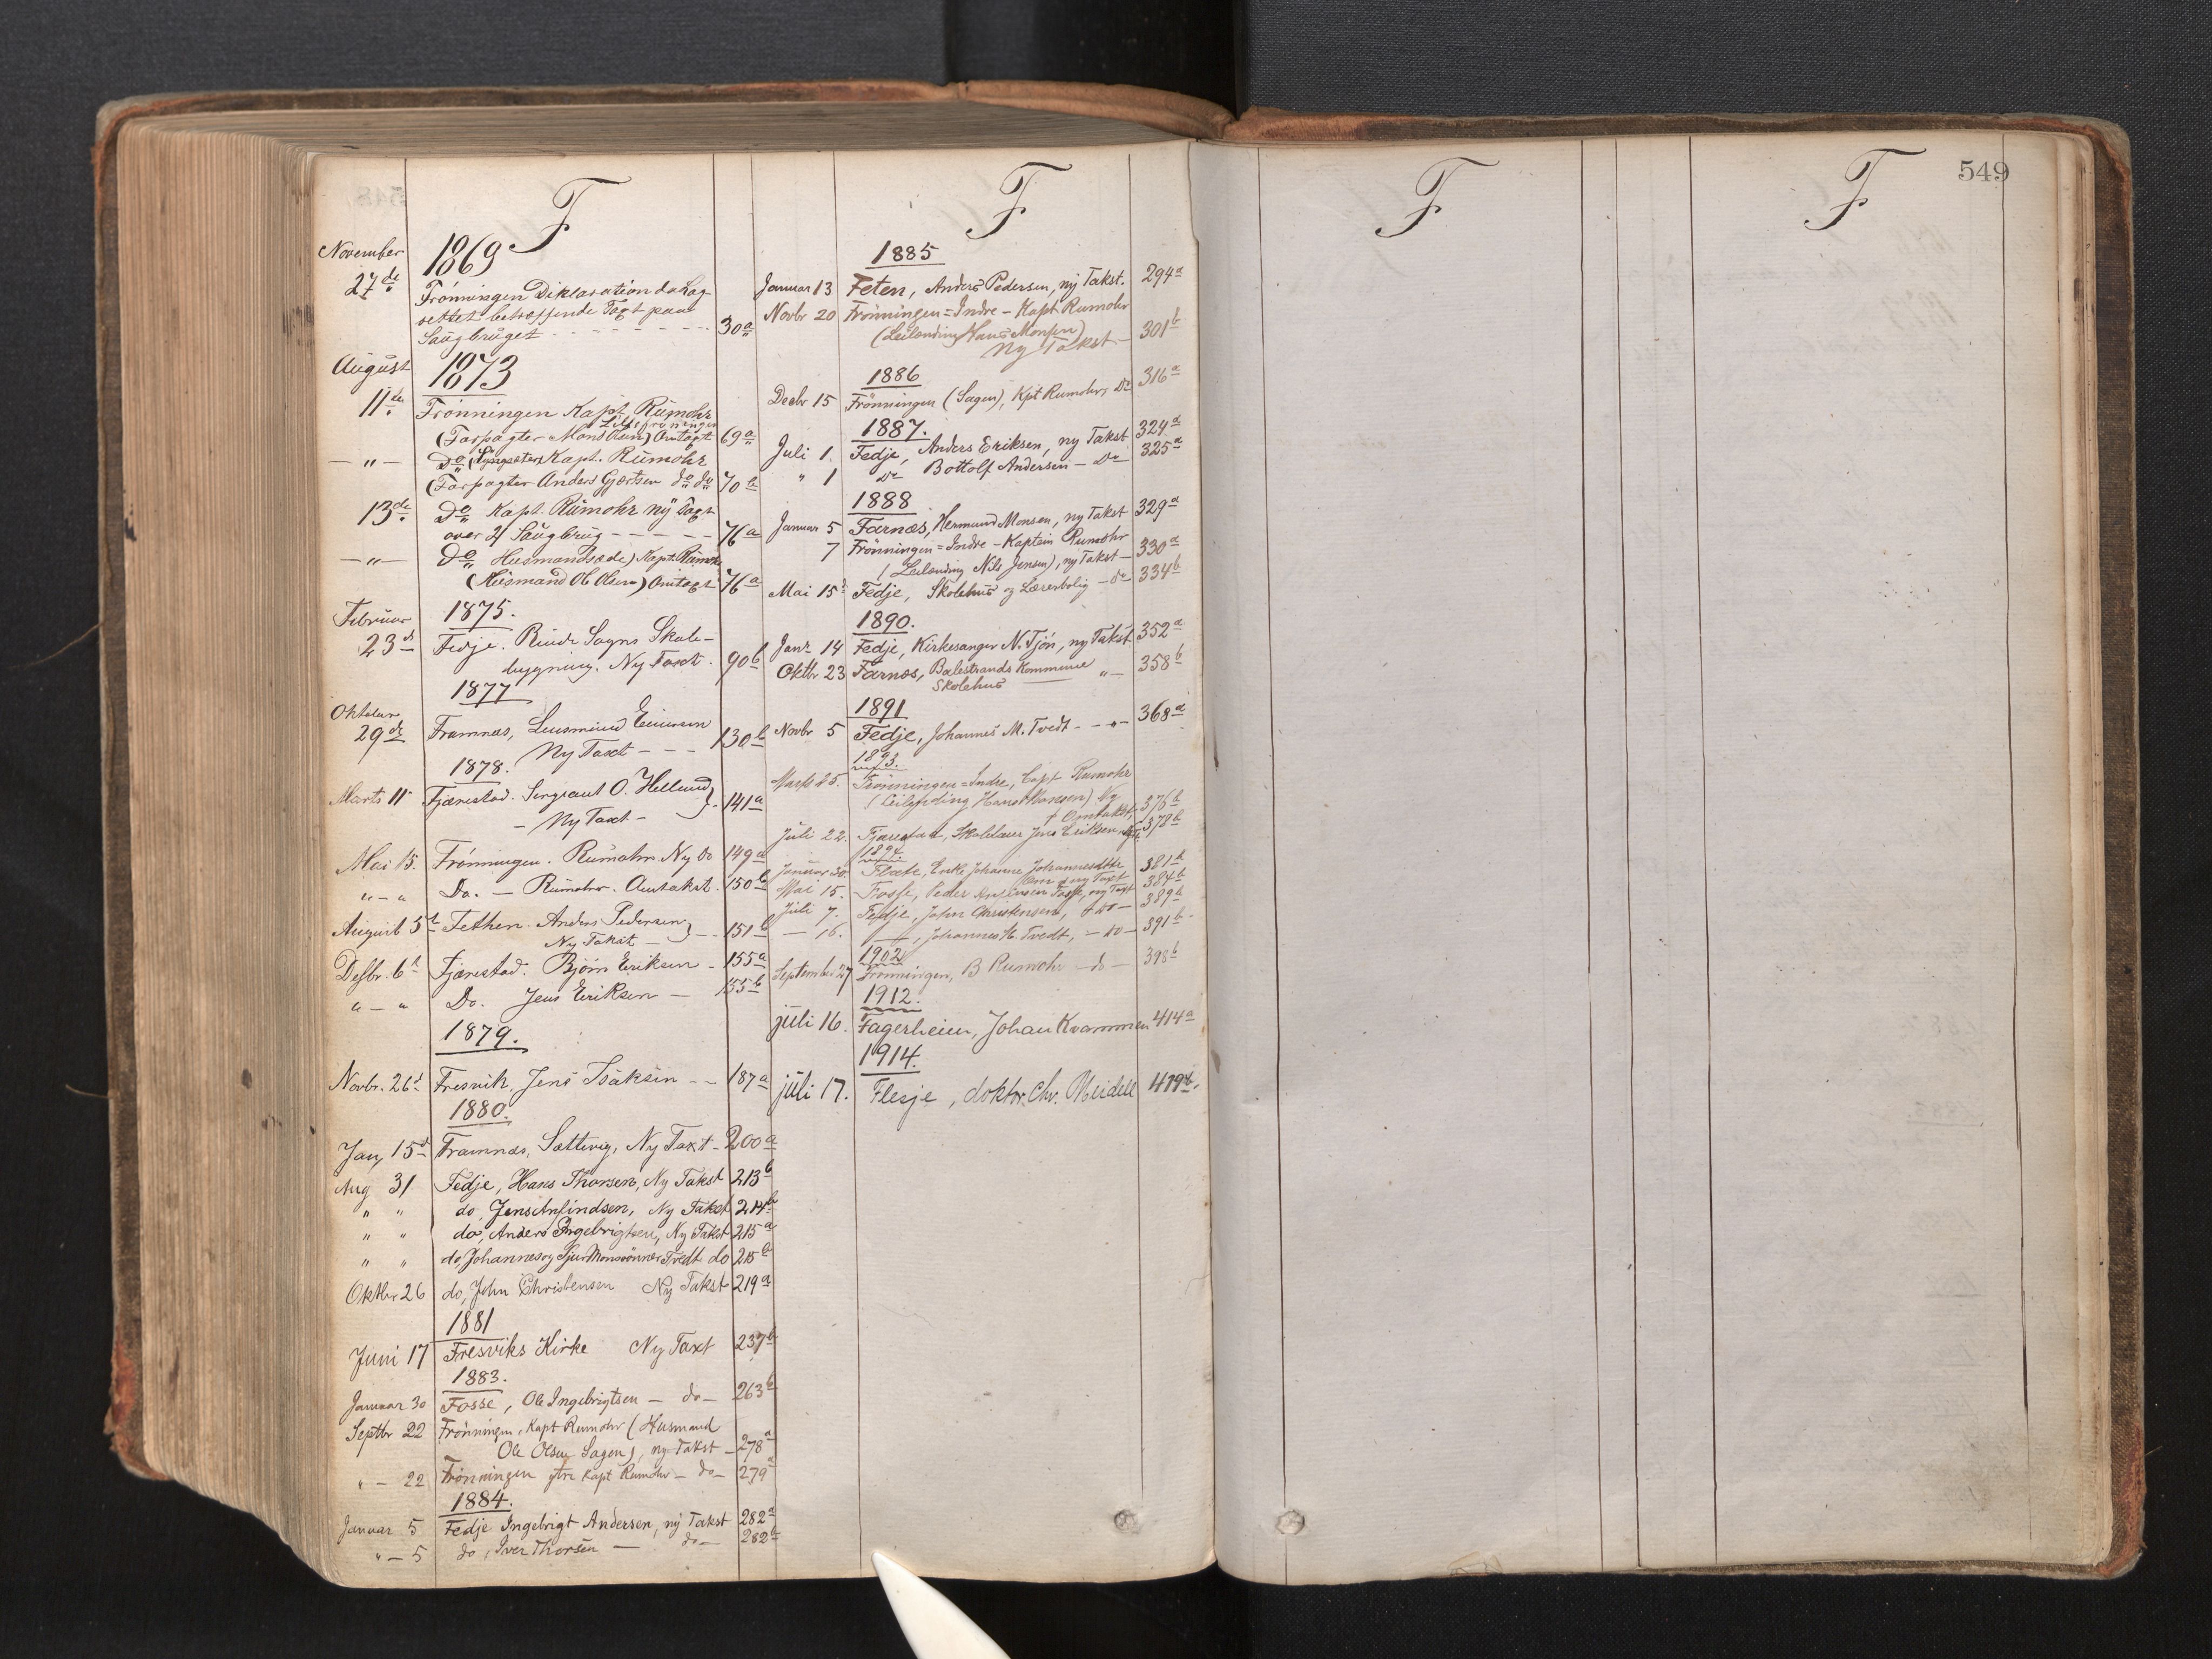 F
November
1869
27de
Frönningen Deklaration da Lag-
rettet betræffende Taxt paa
Saugbruget - - - - - - 30a
August
1873
11te Frönningen Kapt. Rumohr
(Forpagter Mons Olsen) Omtaxt 69a
— " — Do Kapt. Rumohr
(Forpagter Anders Gjertsen do do 70b
13de Do Kapt. Rumohr ny Taxt
over 2 Saugbrug - - - - - 76a
— " — Do Husmandsæde) Kapt. Rumohr
(Husmand Ole Olsen) Omtaxt 76a
Februar 1875.
23d Fedje. Rinde Sogns Skole-
bygning. Ny Taxt. 90b
1877
Oktober
29de Framnæs, Lensmand Einersen
Ny Taxt - - - 130b
1878.
Marts 11 Fjærestad. Sergeant O. Hellund
- Ny Taxt - 141a
Mai 15. Frönningen. Rumohr. Ny do 149a
" - " Do. — Rumohr. Omtakst. 150b
August 5t Fethen. Anders Pedersen
Ny Takst — 151b
Desbr. 6t Fjærestad. Björn Eriksen - 155a
" - " Do. Jens Eriksen — 155b
1879.
Novbr. 26d Fresvik, Jens Isaksen - - 187a
1880.
Jan 15d Framnæs, Sættevig, Ny Taxt - 200a
Aug 31 Fedje, Hans Thorsen, Ny Takst 213b
" " do, Jens Anfindsen, Ny Takst 214b
" " do, Anders Ingebrigtsen, Ny Takst 215a
" " do, Johannes og Sjur Monssönner Tvedt do 215b
Oktbr 26 do, John Christensen Ny Takst 219a
1881
Juni 17 Fresviks Kirke Ny Taxt 237b
1883.
Januar 30 Fosse, Ole Ingebrigtsen — do — 263b
Septbr 22 Frönningen, Kapt Rumohr (Husmand
Ole Olsen Sagen), ny Takst — 278a
" — 22 Frönningen ytre Kapt Rumohr — do — 279a
1884.
Januar 5 Fedje Ingebrigt Andersen, ny Takst 282a
" — 5 do, Iver Thorsen — do — 282b
F
1885
Januar 13 Feten, Anders Pedersen, ny Takst. 294a
Novbr 20 Frönningen = Indre — Kapt Rumohr
(Leilænding Hans Monsen)
Ny Takst — 301b
1886
Decbr 15 Frönningen (Sagen), Kpt Rumohr, Do 316a
1887.
Juli 1. Fedje, Anders Eriksen, ny Takst 324a
" 1 Do Bottolf Andersen — Do — 325a
1888
Januar 5 Farnæs, Hermund Monsen, ny Takst 329a
7 Frönningen = Indre — Kaptein Rumohr
(Leilænding Nils Jensen), ny Takst — 330a
Mai 15d Fedje, Skolehus og Lærerbolig — do — 334b
1890.
Janr 14 Fedje, Kirkesanger N. Tjön, ny Takst 352a
Oktbr 23 Farnæs, Balestrands Kommune
Skolehus " — 358b
1891
Novbr 5 Fedje, Johannes M. Tvedt - — " — 368a
1893.
Marts 25. Frönningen = Indre, Capt Rumohr
(Leilænding Hans Monsen) Ny
+ Omtakst, 376b
Juli 22. Fjærestad, Skolelærer Jens Eriksen, 378b
1894.
Januar 20. Flæte, Enke Johanne Johannesdtr
Om & ny Taxt 381b
Mai 15. Fosse, Peder Fosse, ny Taxt 384b
Juli 7. Fedje, John Christensen, + do — 389b
— 16. —, Johannes M. Tvedt, — do — 391b
1902
September 27 Frönningen, B Rumohr — do — 398b
1912.
juli 16. Fagerheim, Johan Kvammen 414a
1914.
juli 17. Flesje, doktor Chr. Meidell 419b
F
F
549